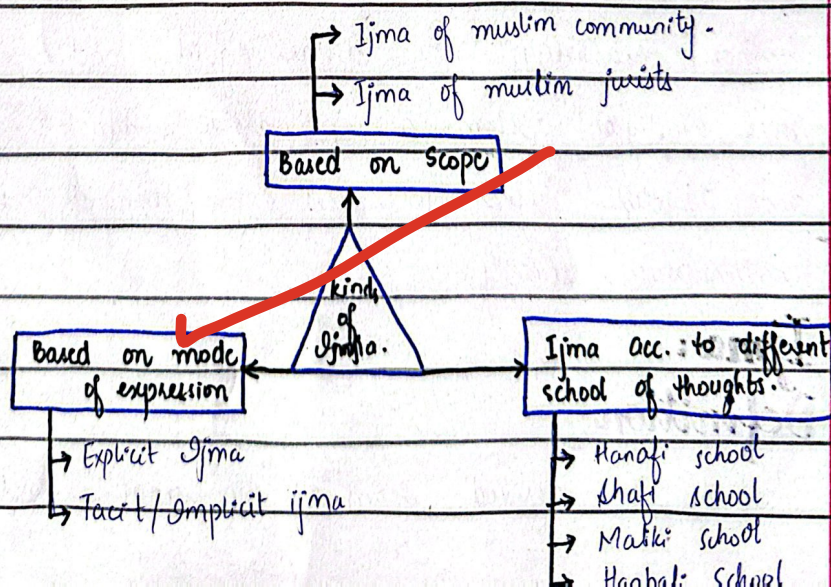 Ijma of muslim community.
Ijma of muslim jurists
Based on Scope
kinds
of
Ijma.
Based on mode
of expression
Explicit Ijma
Tacit/Implicit ijma
Ijma acc. to different
school of thoughts.
Hanafi school
Shafi school
Maliki school
Hanbali School